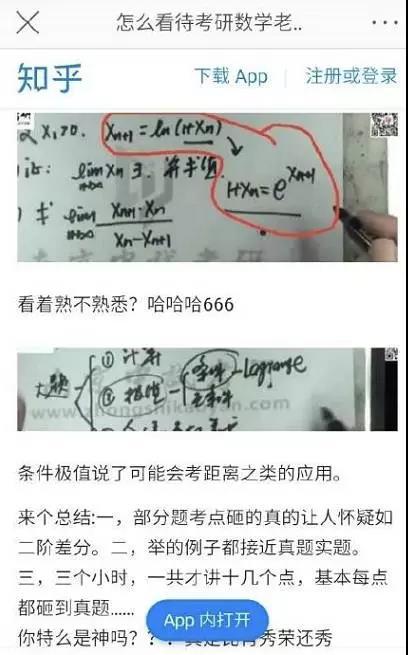 怎么看待考研数学老..
知乎
下载 App
注册或登录
义 X₁>0. Xₙ₊₁ = ln(1+Xₙ)
证: lim Xₙ ∃. 并求值
n→∞
1+Xₙ = e^(Xₙ₊₁)
) 求 lim Xₙ₊₁·Xₙ / Xₙ-Xₙ₊₁
n→∞
看着熟不熟悉？哈哈哈666
① 计算
大题
② 极值
条件
Lagrange
无条件
www.zhongshikaoyan.com
条件极值说了可能会考距离之类的应用。
来个总结:一，部分题考点砸的真的让人怀疑如
二阶差分。二，举的例子都接近真题实题。
三，三个小时，一共才讲十几个点，基本每点
都砸到真题......
App 内打开
你特么是神吗？？
秀荣还秀